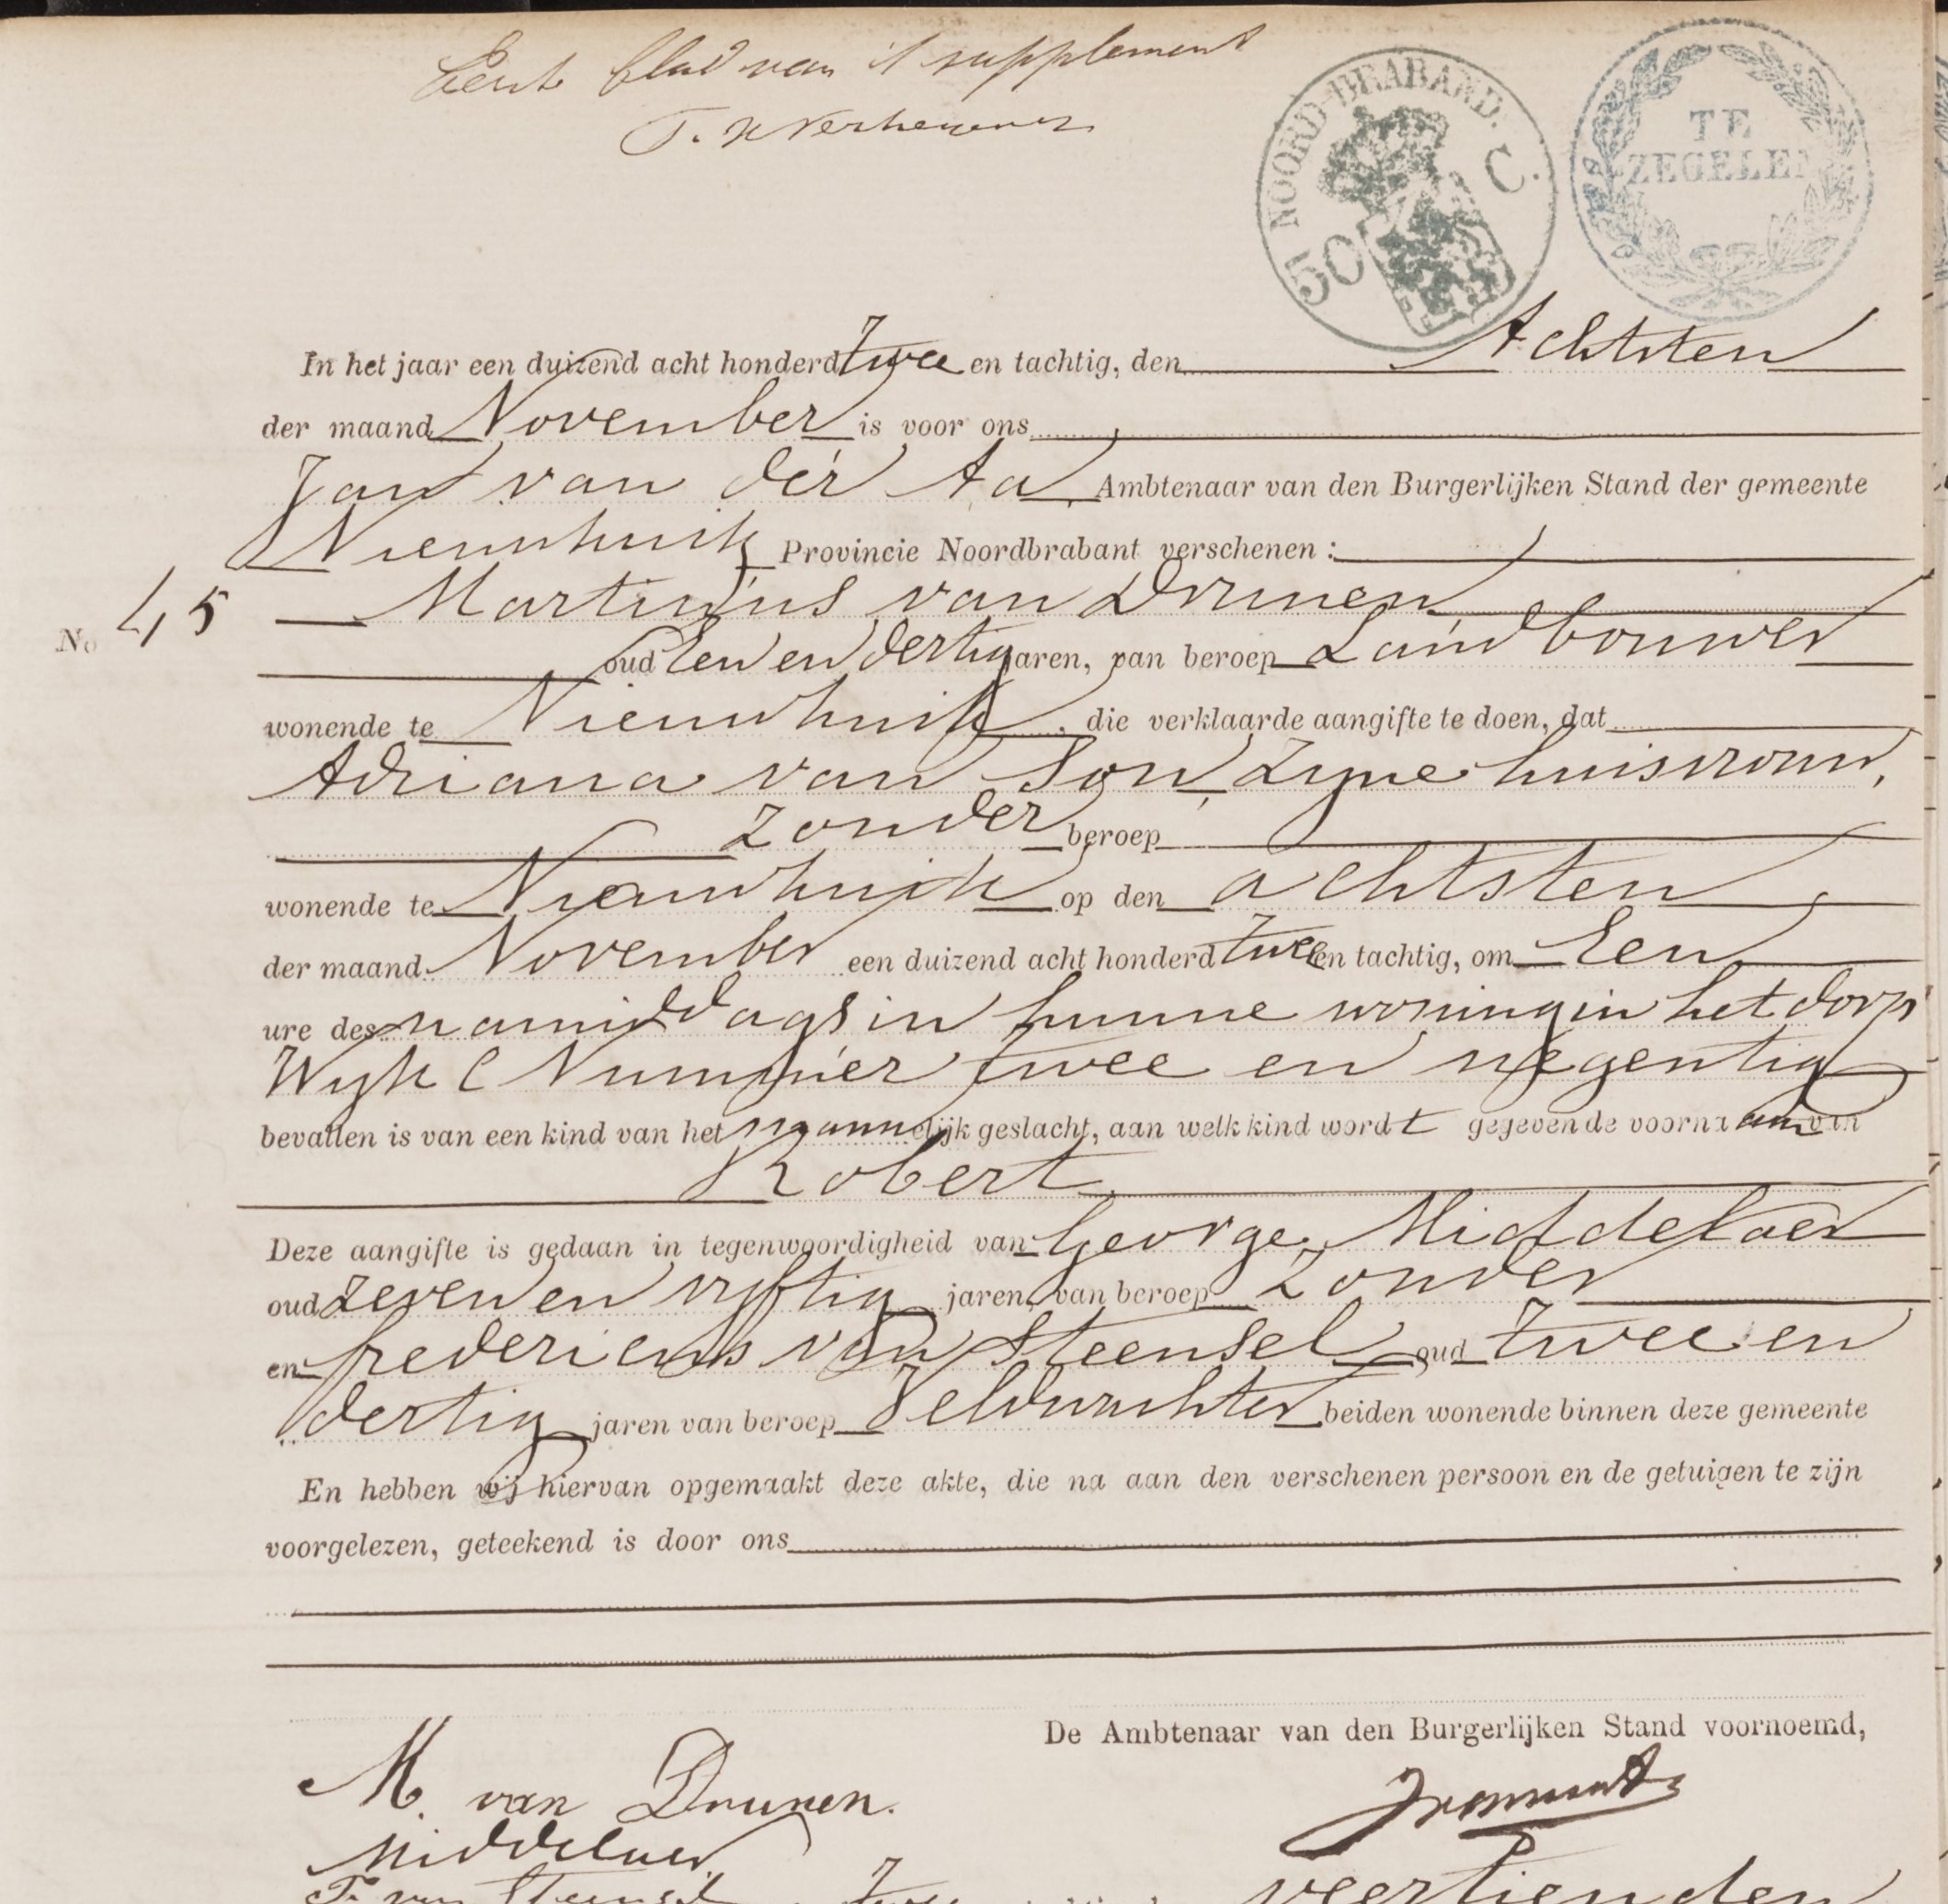 Eerste blad van 't supplement
NOORD-BRABAND. 50 C.
TE
ZEGELEN
In het jaar een duizend acht honderd twee en tachtig, den Achtsten
der maand November is voor ons
Jan van der Aa Ambtenaar van den Burgerlijken Stand der gemeente
Nieuwkuik Provincie Noordbrabant verschenen:
No 45 Martinus van Drunen
oud Een en dertig jaren, van beroep Landbouwer
wonende te Nieuwkuik, die verklaarde aangifte te doen, dat
Adriana van Son, zyne huisvrouw,
zonder beroep
wonende te Nieuwkuik op den achtsten
der maand November een duizend acht honderd twee en tachtig, om Een
ure des namiddags in hunne woning in het dorp
Wyk C Nummer twee en negentig
bevallen is van een kind van het mannelijk geslacht, aan welk kind wordt gegeven de voornaam van
Robert
Deze aangifte is gedaan in tegenwoordigheid van George Middelaer
oud zeven en vyftig jaren, van beroep zonder
en fredericus van Steensel oud twee en
dertig jaren van beroep Veldwachter beiden wonende binnen deze gemeente
En hebben wij hiervan opgemaakt deze akte, die na aan den verschenen persoon en de getuigen te zijn
voorgelezen, geteekend is door ons
De Ambtenaar van den Burgerlijken Stand voornoemd,
M. van Drunen.
Middelaer
F. van Steensel
twee veertienden